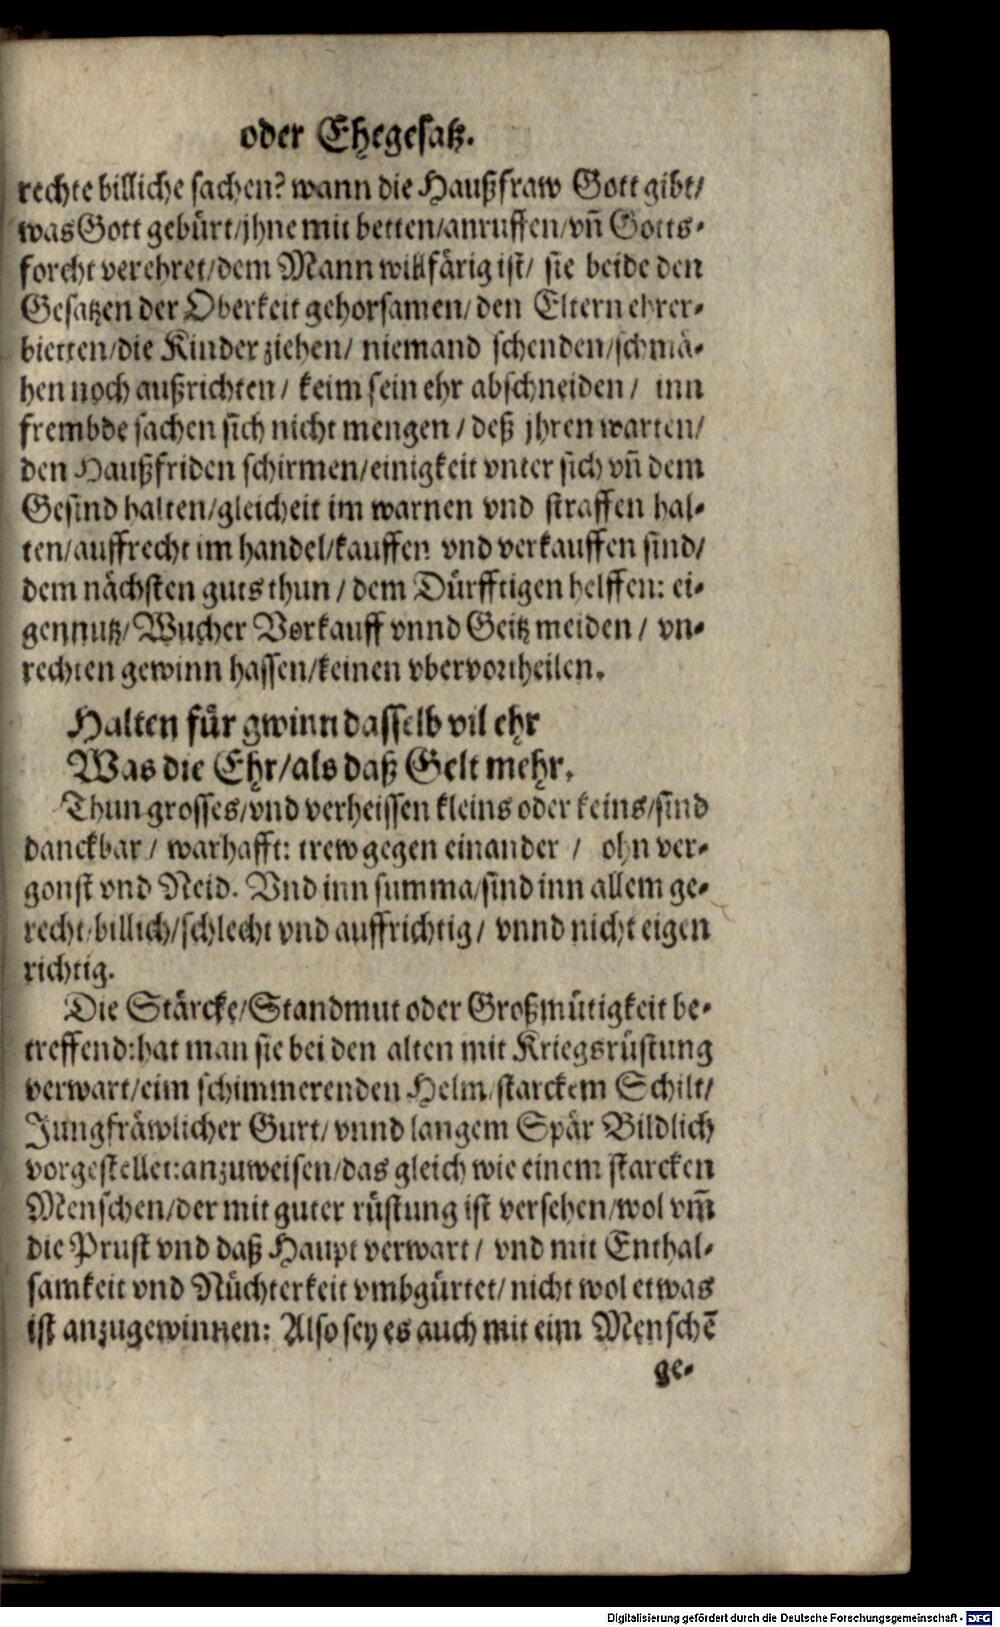 oder Ehegesatz.
rechte billiche sachen? wann die Haußfraw Gott gibt/
was Gott gebürt/jhne mit betten/anruffen/vñ Gotts-
forcht verehret/dem Mann willfärig ist/ sie beide den
Gesatzen der Oberkeit gehorsamen/den Eltern ehrer-
bietten/die Kinder ziehen/ niemand schenden/schmä-
hen noch außrichten/ keim sein ehr abschneiden/ inn
frembde sachen sich nicht mengen/deß jhren warten/
den Haußfriden schirmen/einigkeit vnter sich vñ dem
Gesind halten/gleicheit im warnen vnd straffen hal-
ten/auffrecht im handel/kauffen vnd verkauffen sind/
dem nächsten guts thun/dem Dürfftigen helffen: ei-
gennutz/Wucher Vorkauff vnnd Geitz meiden/ vn-
rechten gewinn hassen/keinen vbervortheilen.
Halten für gwinn dasselb vil ehr
Was die Ehr/als daß Gelt mehr.
Thun grosses/vnd verheissen kleins oder keins/sind
danckbar/ warhafft: trew gegen einander/ ohn ver-
gonst vnd Neid. Vnd inn summa/sind inn allem ge-
recht/billich/schlecht vnd auffrichtig/ vnnd nicht eigen
richtig.
Die Stärcke/Standmut oder Großmütigkeit be-
treffend:hat man sie bei den alten mit Kriegsrüstung
verwart/eim schimmerenden Helm/starckem Schilt/
Jungfräwlicher Gurt/vnnd langem Spär Bildlich
vorgestellet:anzuweisen/das gleich wie einem starcken
Menschen/der mit guter rüstung ist versehen/wol vm̃
die Prust vnd daß Haupt verwart/ vnd mit Enthal-
samkeit vnd Nüchterkeit vmbgürtet/nicht wol etwas
ist anzugewinnen: Also sey es auch mit eim Menschẽ
ge-
Digitalisierung gefördert durch die Deutsche Forschungsgemeinschaft - DFG